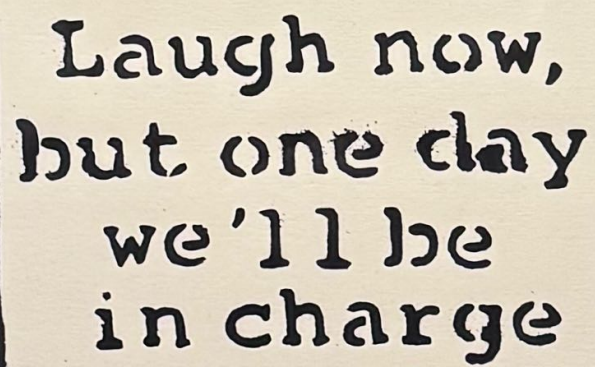 Laugh now,
but one day
we'll be
in charge